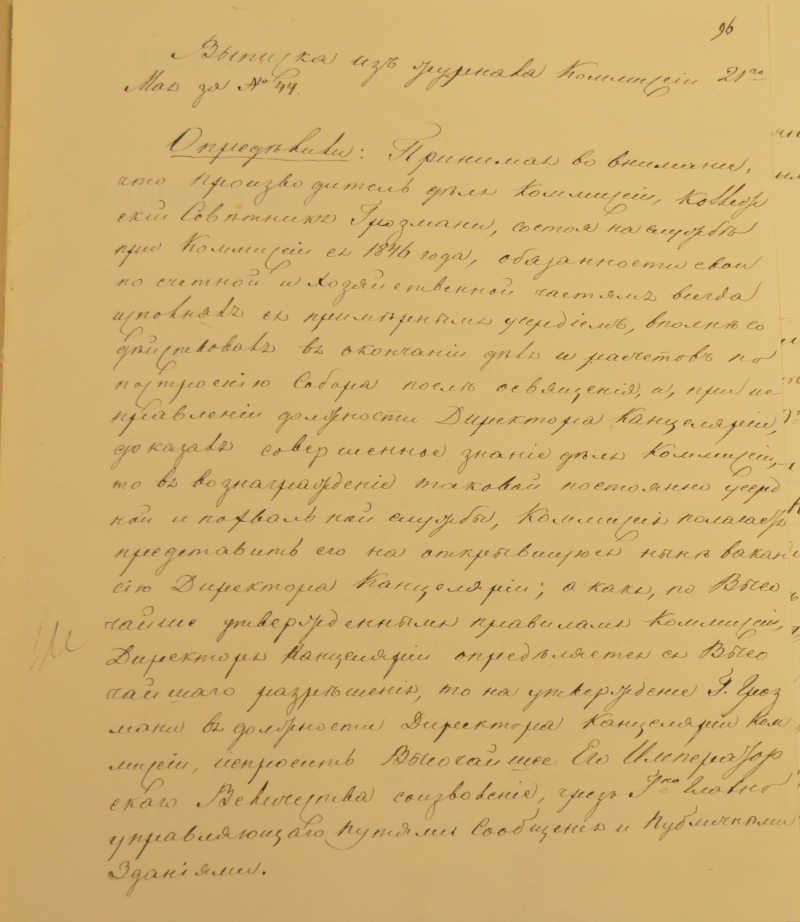 96
Выписка изъ журнала Коммисіи 21го
Мая за № 44.
Опредѣлили: Принимая во вниманіе,
что производитель дѣлъ Коммисіи, Коллеж
скій Совѣтникъ Грозманъ, состоя на службѣ
при Коммисіи съ 1846 года, обязанности свои
по счетной и хозяйственной частямъ всегда
исполнялъ съ примѣрнымъ усердіемъ, вполнѣ со
дѣйствовалъ въ окончаніи дѣлъ и расчетовъ по
построенію Собора послѣ освященія, и, при ис
правленіи должности Директора Канцеляріи,
доказалъ совершенное знаніе дѣлъ Коммисіи,
то въ вознагражденіе таковой постоянно усерд
ной и похвальной службы, Коммисія полагаетъ
представить его на открывшуюся нынѣ вакан
сію Директора Канцеляріи; а какъ, по Высо
чайше утвержденнымъ правиламъ Коммисіи,
Директоръ Канцеляріи опредѣляется съ Высо
чайшаго разрѣшенія, то на утвержденіе Г. Гроз
мана въ должности Директора Канцеляріи Ком
мисіи, испросить Высочайшее Его Император
скаго Величества соизволеніе, чрезъ Гна Главно
управляющаго Путями Сообщенія и Публичными
Зданіями.